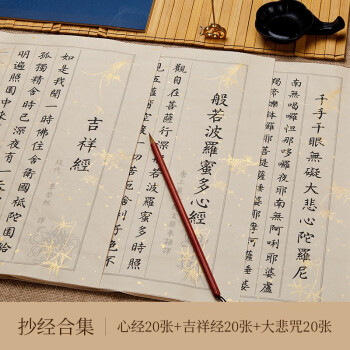 千手千眼無礙大悲心陀羅尼
南無喝囉怛那哆囉夜耶南無阿唎耶婆盧
般若波羅蜜多心經
觀自在菩薩行深般若波羅蜜多時照
吉祥經
如是我聞一時佛住舍衛國祇陀園給
孤獨精舍時已深夜有一天
明遍照園中來
抄经合集
心经20张+吉祥经20张+大悲咒20张